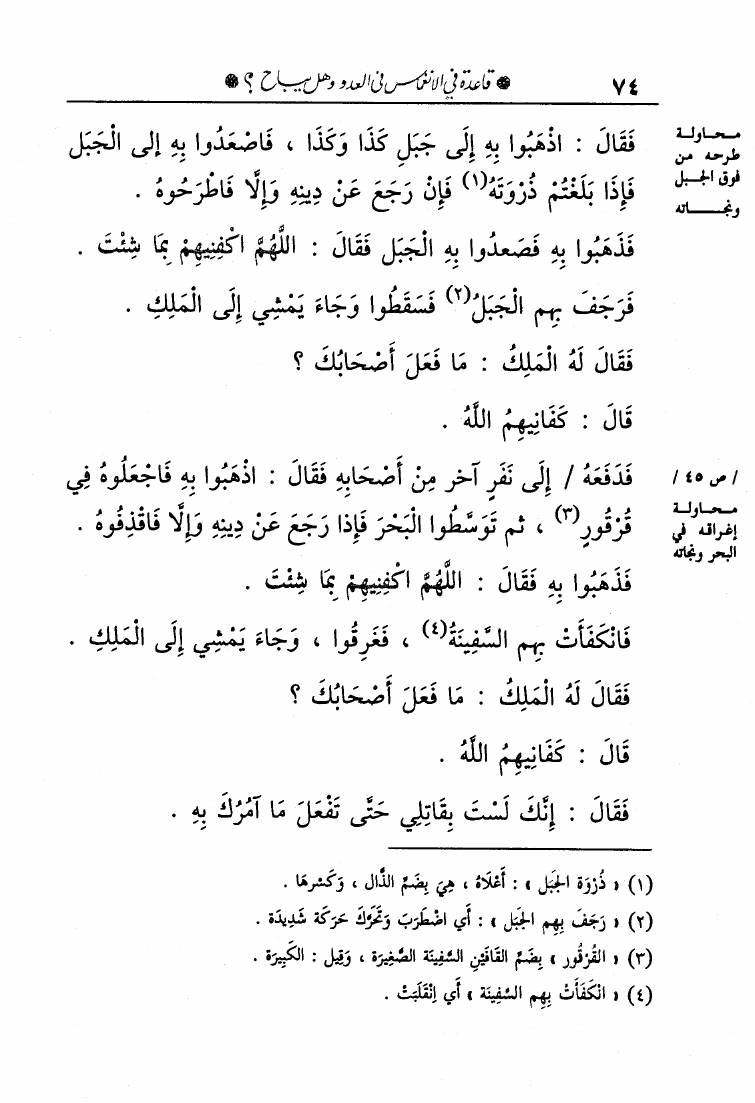 ٧٤
* قاعدة في الانغماس في العدو وهل يباح ؟ *
محاولة
طرحه من
فوق الجبل
ونجاته
فَقَالَ : اذْهَبُوا بِهِ إِلَى جَبَلِ كَذَا وَكَذَا ، فَاصْعَدُوا بِهِ إلى الْجَبَل
فَإِذَا بَلَغْتُمْ ذُرْوَتَهُ(١) فَإِنْ رَجَعَ عَنْ دِينِهِ وَإِلَّا فَاطْرَحُوهُ .
فَذَهَبُوا بِهِ فَصَعدُوا بِهِ الْجَبَل فَقَالَ : اللَّهُمَّ اكْفِنِيهِمْ بِمَا شِئْتَ .
فَرَجَفَ بِهِم الْجَبَلُ(٢) فَسَقَطُوا وَجَاءَ يَمْشِي إِلَى الْمَلِكِ .
فَقَالَ لَهُ الْمَلِكُ : مَا فَعَلَ أَصْحَابُكَ ؟
قَالَ : كَفَانِيهِمُ اللَّهُ .
/ ص ٤٥ /
محاولة
إغراقه في
البحر ونجاته
فَدَفَعَهُ / إِلَى نَفَرٍ آخر مِنْ أَصْحَابِهِ فَقَالَ : اذْهَبُوا بِهِ فَاجْعَلُوهُ فِي
قُرْقُورٍ(٣) ، ثم تَوَسَّطُوا الْبَحْرَ فَإِذَا رَجَعَ عَنْ دِينِهِ وَإِلَّا فَاقْذِفُوهُ .
فَذَهَبُوا بِهِ فَقَالَ : اللَّهُمَّ اكْفِنِيهِمْ بِمَا شِئْتَ .
فَانْكَفَأَتْ بِهِم السَّفِينَةُ(٤) ، فَغَرِقُوا ، وَجَاءَ يَمْشِي إِلَى الْمَلِكِ .
فَقَالَ لَهُ الْمَلِكُ : مَا فَعَلَ أَصْحَابُكَ ؟
قَالَ : كَفَانِيهِمُ اللَّهُ .
فَقَالَ : إِنَّكَ لَسْتَ بِقَاتِلِي حَتَّى تَفْعَلَ مَا آمُرُكَ بِهِ .
(١) « ذُرْوَة الجَبَل » : أَعْلَاهُ ، هِيَ بِضَمِّ الذَّال ، وَكَسْرهَا .
(٢) « رَجَفَ بِهِم الجَبَل » : أَي اضْطَرَبَ وَتَحَرَّكَ حَرَكَة شَدِيدَة .
(٣) « القُرْقُور » بِضَمِّ القَافَيْنِ السَّفِينَة الصَّغِيرَة ، وَقِيل : الكَبِيرَة .
(٤) « انْكَفَأَتْ بِهِم السَّفِينَة » أَي اِنْقَلَبَتْ .